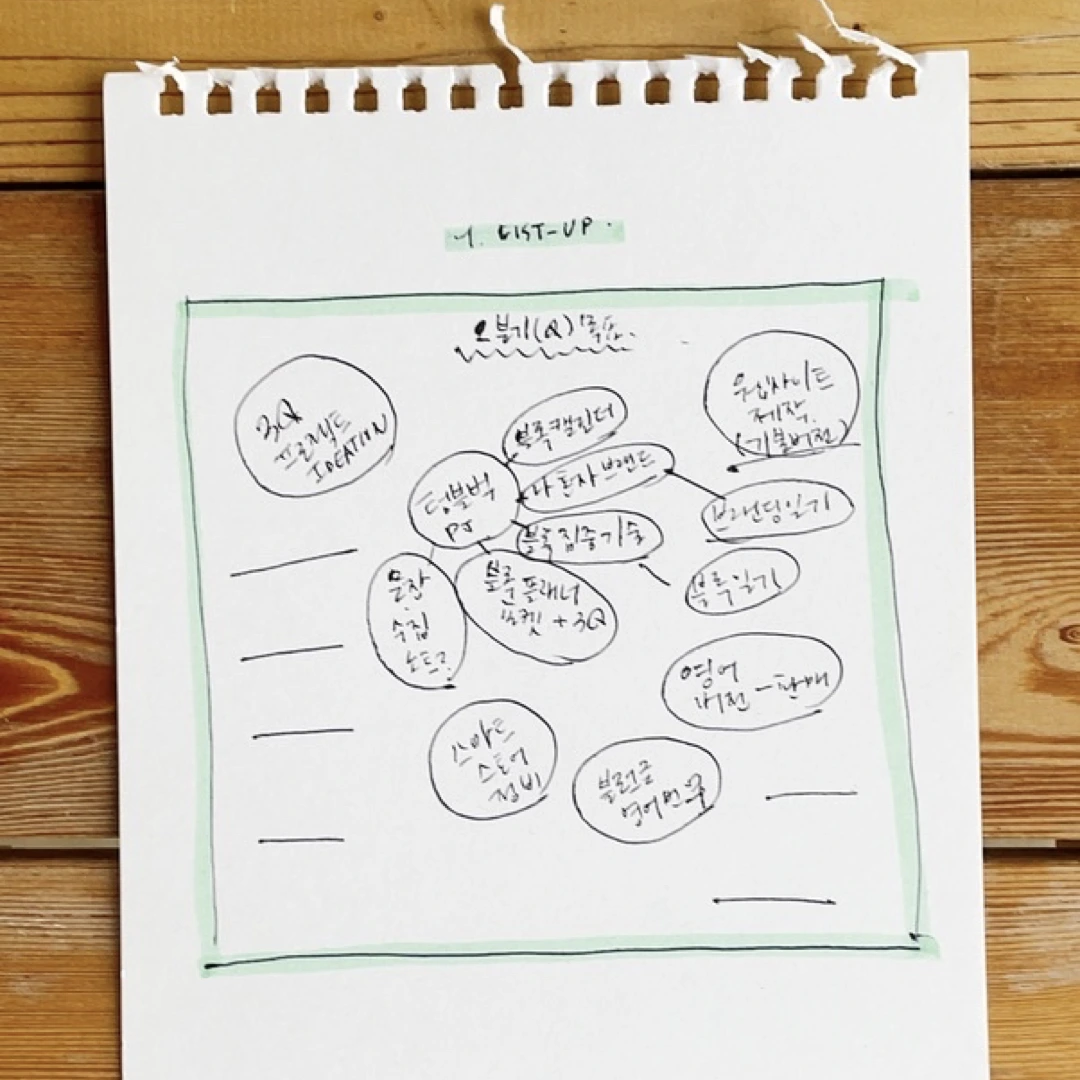 1. LIST-UP.
분기(Q) 목표.
3Q
프로젝트
IDEATION
블록캘린더
웹사이트
제작.
(기본버전)
텀블벅
PJ
나 혼자 브랜드
브랜딩일기
블록집중기술
문장
수집
노트?
블록플래너
포켓 + 3Q
블록일기
영어
버전 - 판매
스마트
스토어
정비
영어번